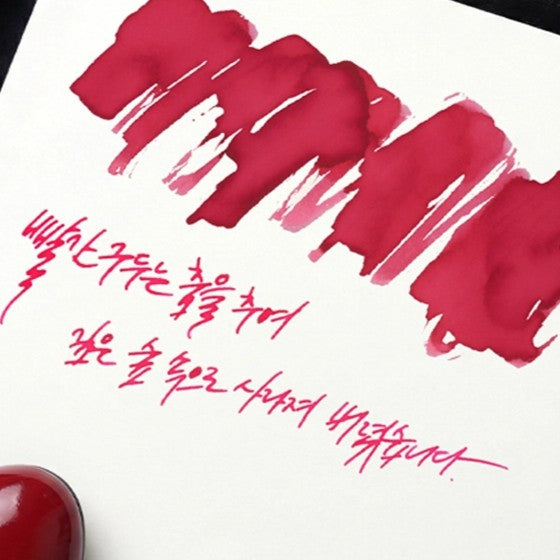 빨간 구두는 춤을 추며
깊은 숲 속으로 사라져 버렸습니다.